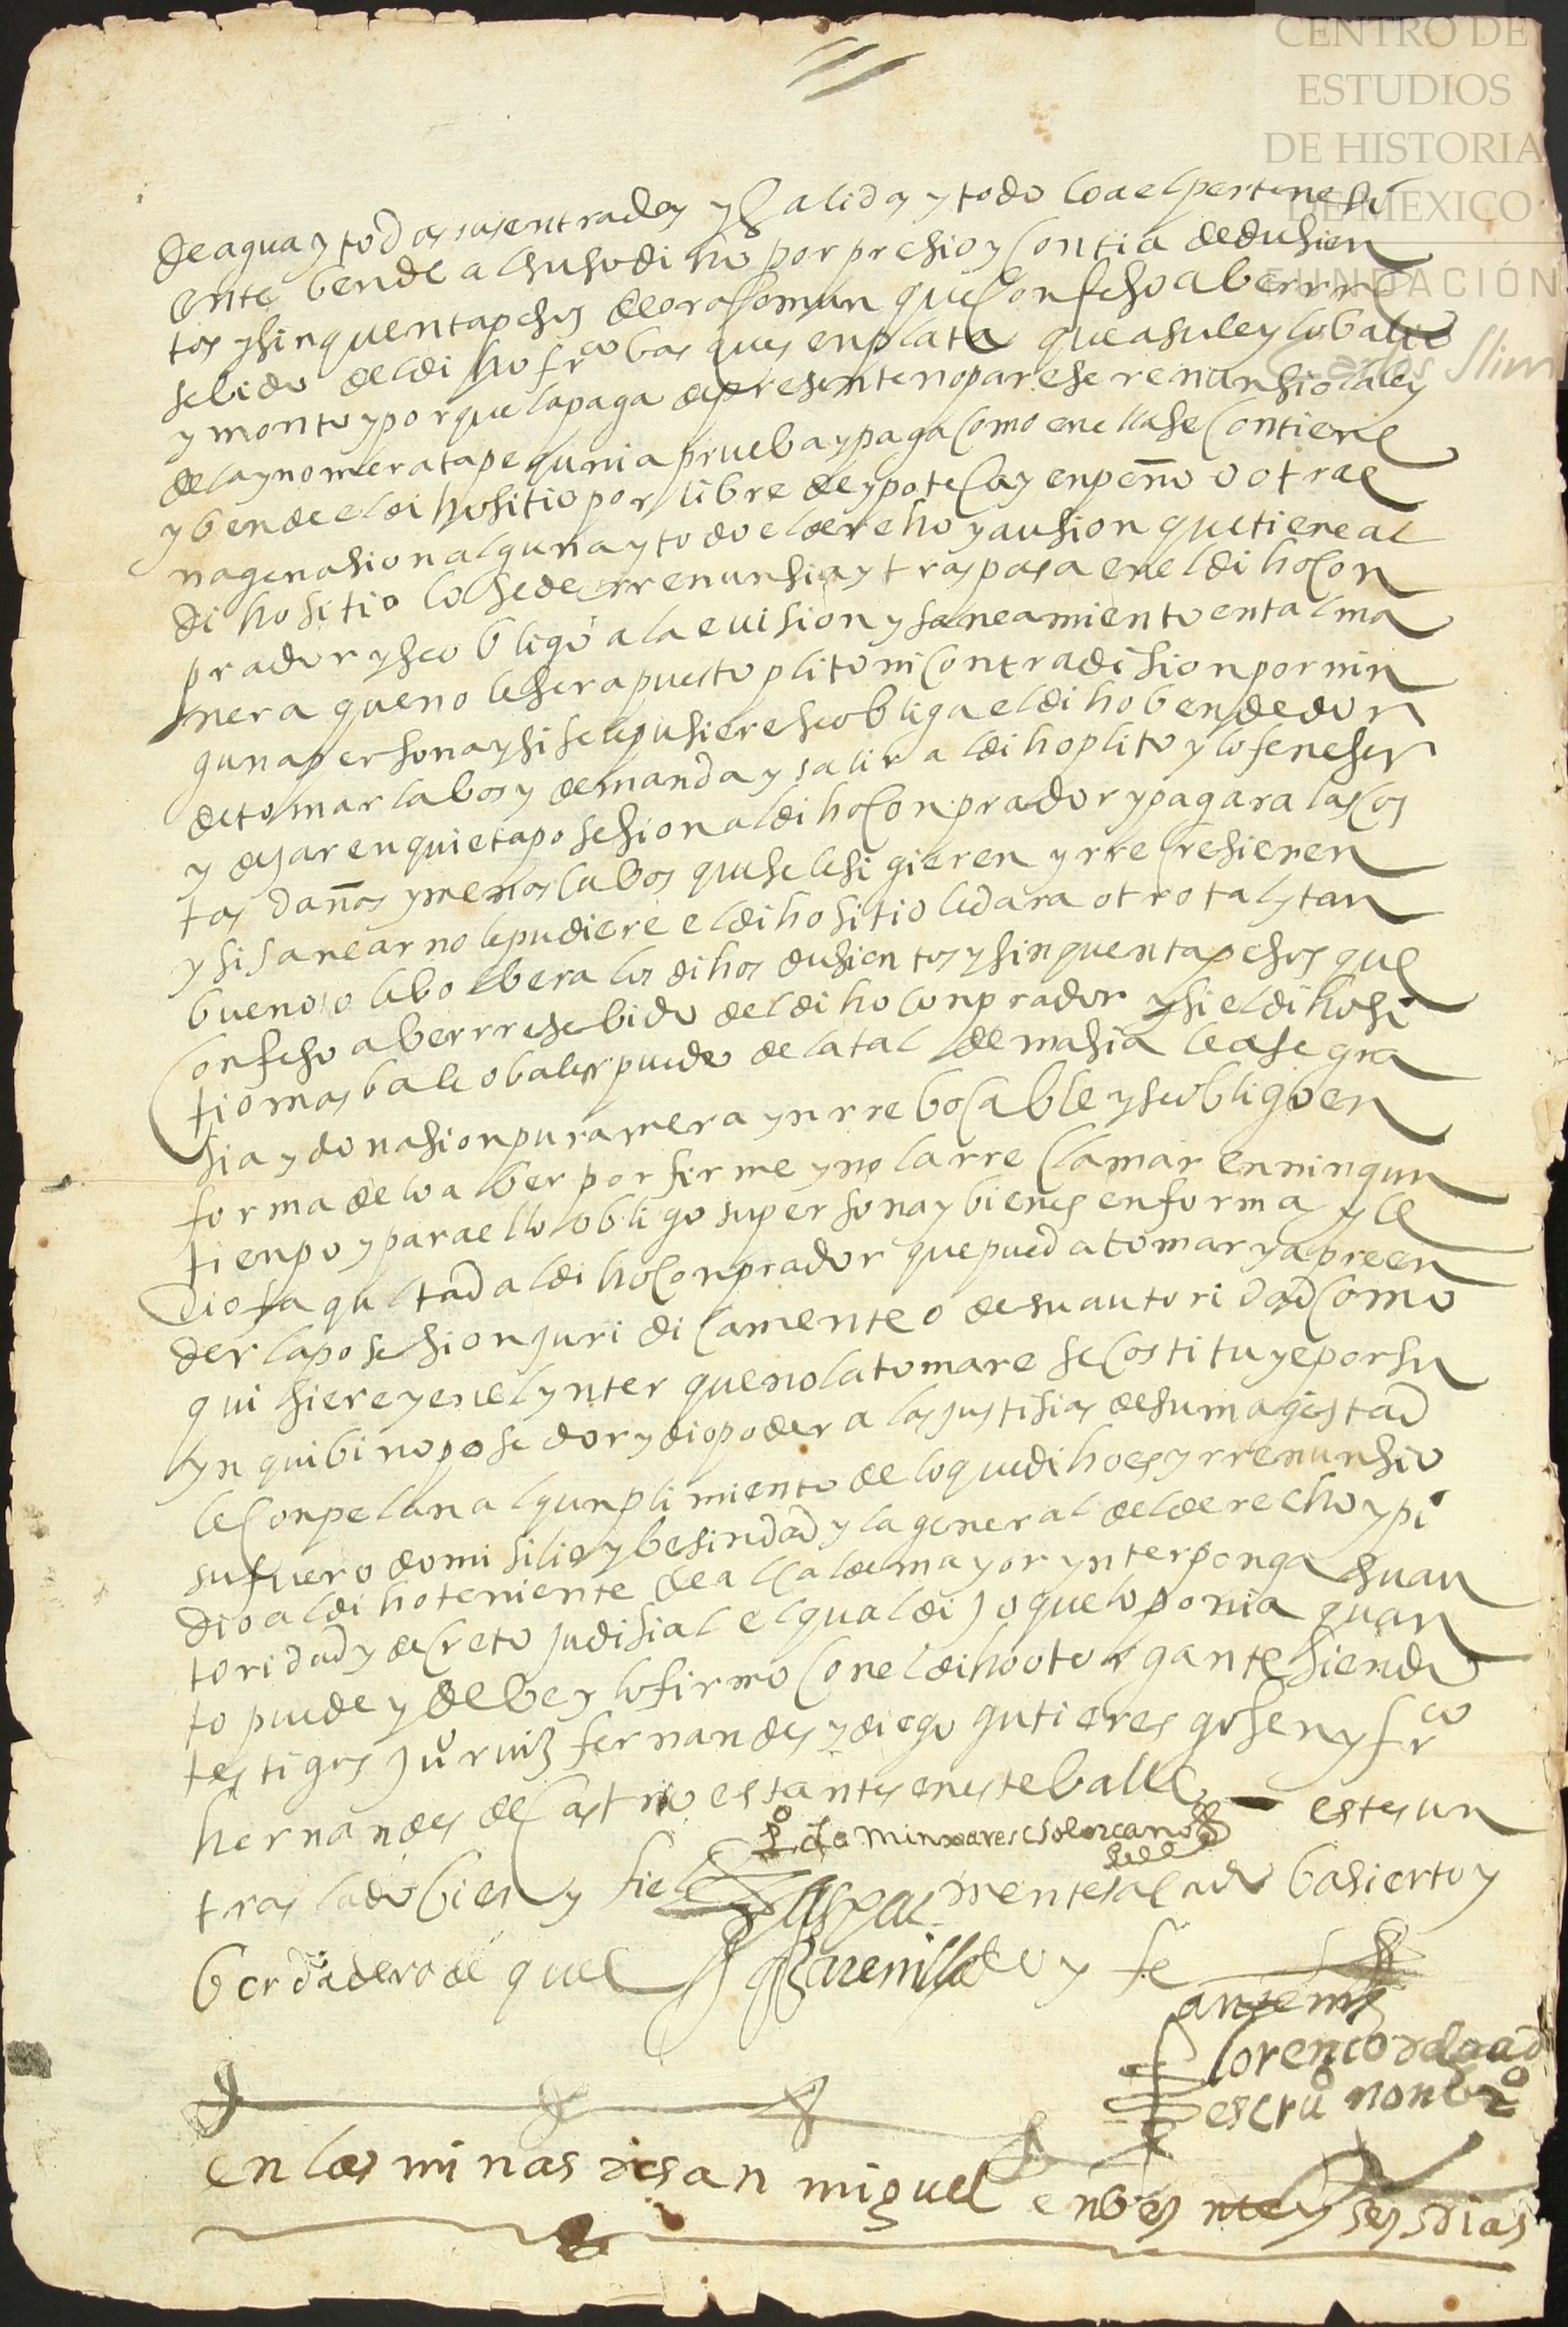 CENTRO DE
ESTUDIOS
DE HISTORIA
DE MEXICO
FUNDACIÓN
Carlos Slim
de agua y todas sus entradas y salidas y todo lo a el pertenesi
ente bende al susodi ho por presio y contia de dusien
tos y sinquenta pesos de oro comun que confeso aber rre
sebido del di ho frco bas ques en plata que a su ley lo balio
y monto y por que la paga de presente no parese renunsio la ley
de la ynomerata pequnia prueba y paga como en ella se contiene
y bende el di ho sitio por libre de ypoteca y enpeño o otra e
nagenasion alguna y todo el dere ho y ausion que tiene al
di ho sitio lo sede rrenunsia y traspasa en el di ho con
prador y se obligo a la euision y saneamiento en tal ma
nera que no le sera puesto plito ni contradision por nin
guna persona y si se le pusiere se obliga el di ho bendedor
de tomar la bos y demanda y salir al di ho plito y lo feneser
y dejar en quieta posesion al di ho conprador y pagara las cos
tas daños y menoscabos que se le sigieren y rrecresieren
y si sanear no le pudiere el di ho sitio le dara otro tal y tan
bueno o le bolbera los di hos dusientos y sinquenta pesos que
confeso aber rresebido del di ho conprador y si el di ho si
tio mas bale o baler puede de la tal demasia le ase gra
sia y donasion pura mera ynrrebocable y se obligo en
forma de lo aber por firme y no la rreclamar en ningun
tienpo y para ello obligo su persona y bienes en forma y le
dio faqultad al di ho conprador que pueda tomar y apreen
der la posesion juridicamente o de su autoridad como
quisiere y en el ynter que no la tomare se costituye por su
ynquibino posedor y dio poder a las justisias de su magestad
le conpelan al qunplimiento de lo que di ho es y rrenunsio
su fuero domisilio y besindad y la general del derecho y pi
dio al di ho teniente de alcalde mayor ynterponga su au
toridad y decreto judisial el qual dijo que lo ponia quan
to puede y debe y lo firmo con el di ho otorgante siendo
testigos juo ruiz fernandes y diego gutieres gosen y frco
hernandes de castro estantes en este balle estes un
po de minxares solorcano
traslado bien y fiel mente sacado ba sierto y
berdadero de que doy fe
ante mi
lorenco delgad
escriuo nonbrdo
en las minas de san miguel en beynte y seys dias